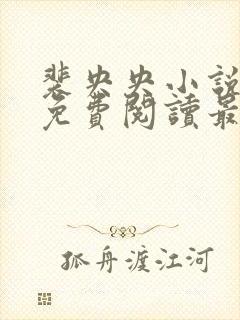 裴央央小說
免費閱讀最
孤舟渡江河